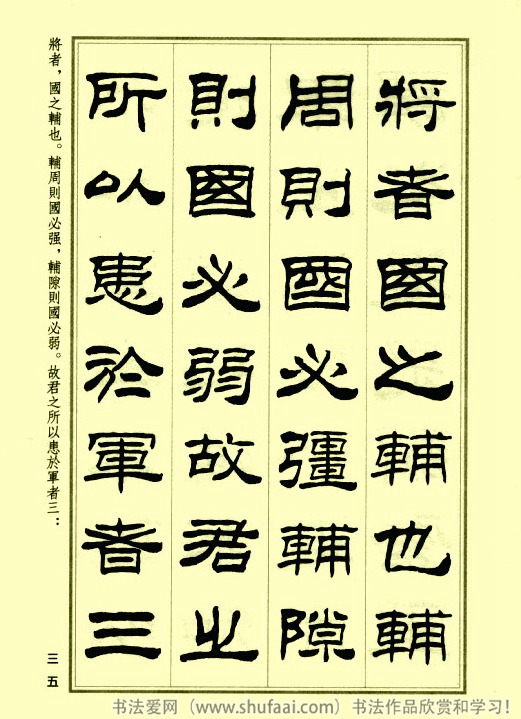 將者國之輔也輔
周則國必彊輔隙
則國必弱故君之
所以患於軍者三
將者，國之輔也。輔周則國必强，輔隙則國必弱。故君之所以患於軍者三：
三五
书法爱网（www.shufaai.com）书法作品欣赏和学习！